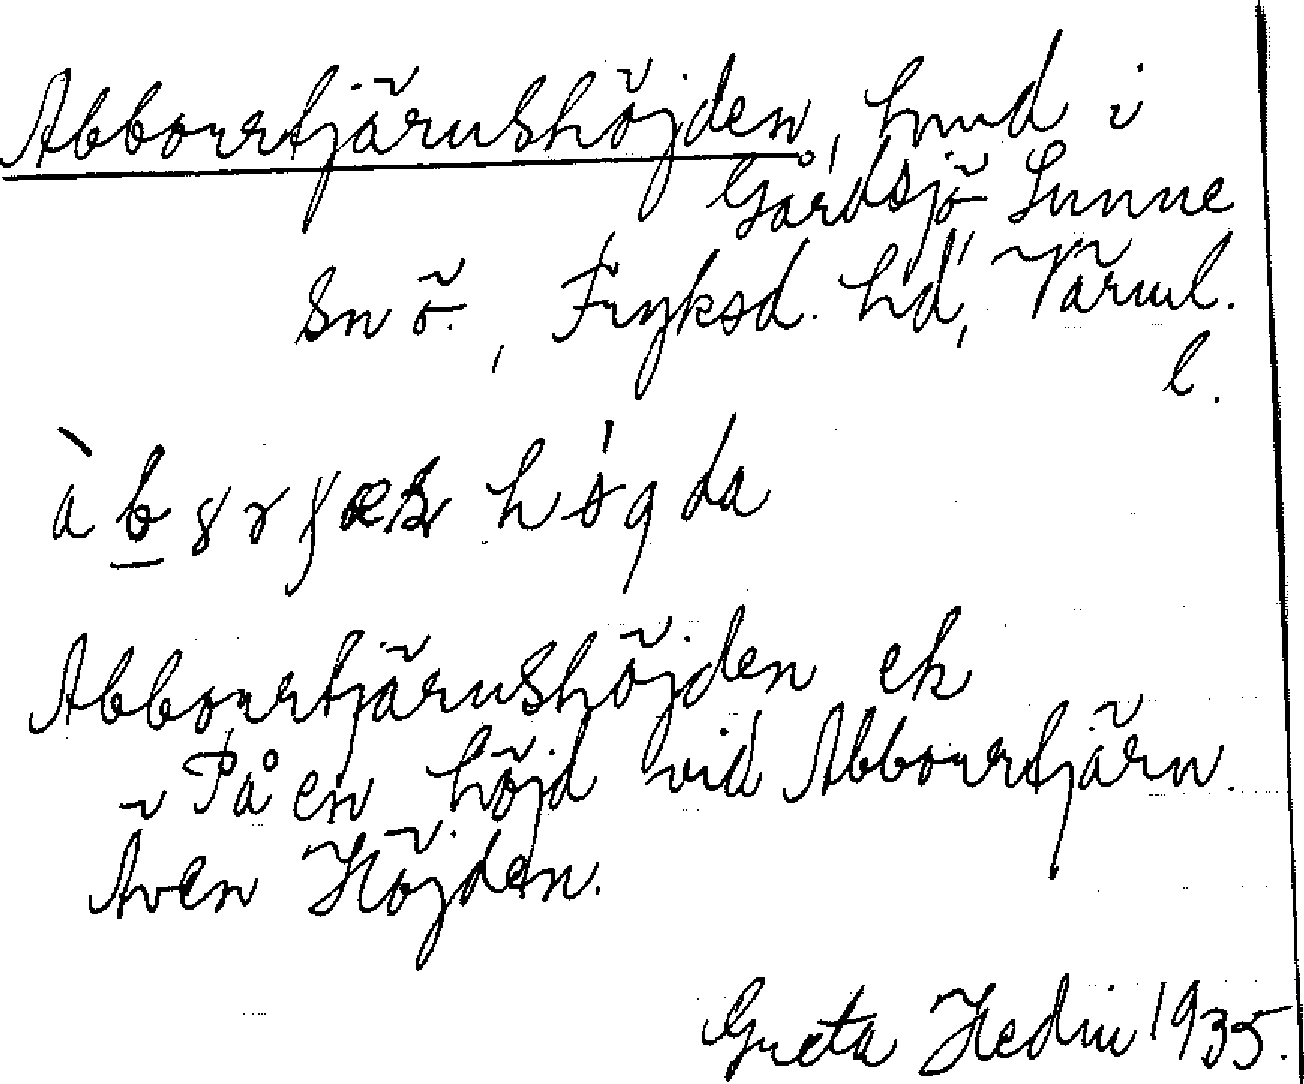 Abborrtjärnshöjden, hmd i
Gårdsjö Sunne
sn ö., Fryksd. hd, Värml.
l.
högda
Abborrtjärnshöjden ek
På en höjd vid Abborrtjärn.
Även Höjden.
Greta Hedin 1935.